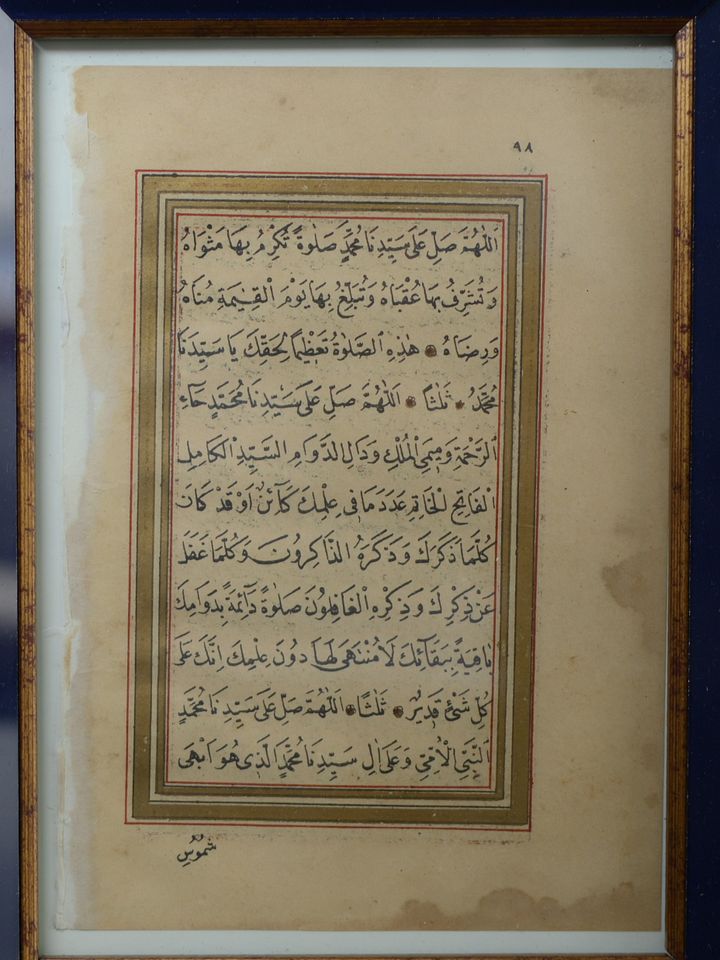 ٩٨
اَللّٰهُمَّ صَلِّ عَلٰى سَيِّدِنَا مُحَمَّدٍ صَلٰوةً تُكْرِمُ بِهَا مَثْوَاهُ
وَتُشَرِّفُ بِهَا عُقْبَاهُ وَتُبَلِّغُ بِهَا يَوْمَ الْقِيٰمَةِ مُنَاهُ
وَرِضَاهُ هٰذِهِ الصَّلٰوةُ تَعْظِيمًا لِحَقِّكَ يَا سَيِّدَنَا
مُحَمَّدُ ثَلٰثًا اَللّٰهُمَّ صَلِّ عَلٰى سَيِّدِنَا مُحَمَّدٍ حَاءِ
الرَّحْمَةِ وَمِيمَيِ الْمُلْكِ وَدَالِ الدَّوَامِ السَّيِّدِ الْكَامِلِ
الْفَاتِحِ الْخَاتِمِ عَدَدَ مَا فِى عِلْمِكَ كَآئِنٌ اَوْ قَدْ كَانَ
كُلَّمَا ذَكَرَكَ وَذَكَرَهُ الذَّاكِرُونَ وَكُلَّمَا غَفَلَ
عَنْ ذِكْرِكَ وَذِكْرِهِ الْغَافِلُونَ صَلٰوةً دَآئِمَةً بِدَوَامِكَ
بَاقِيَةً بِبَقَآئِكَ لَا مُنْتَهٰى لَهَا دُونَ عِلْمِكَ اِنَّكَ عَلٰى
كُلِّ شَىْءٍ قَدِيرٌ ثَلٰثًا اَللّٰهُمَّ صَلِّ عَلٰى سَيِّدِنَا مُحَمَّدٍ
النَّبِىِّ الْاُمِّىِّ وَعَلٰى اٰلِ سَيِّدِنَا مُحَمَّدٍ الَّذِى هُوَ اَبْهٰى
شُمُوسِ